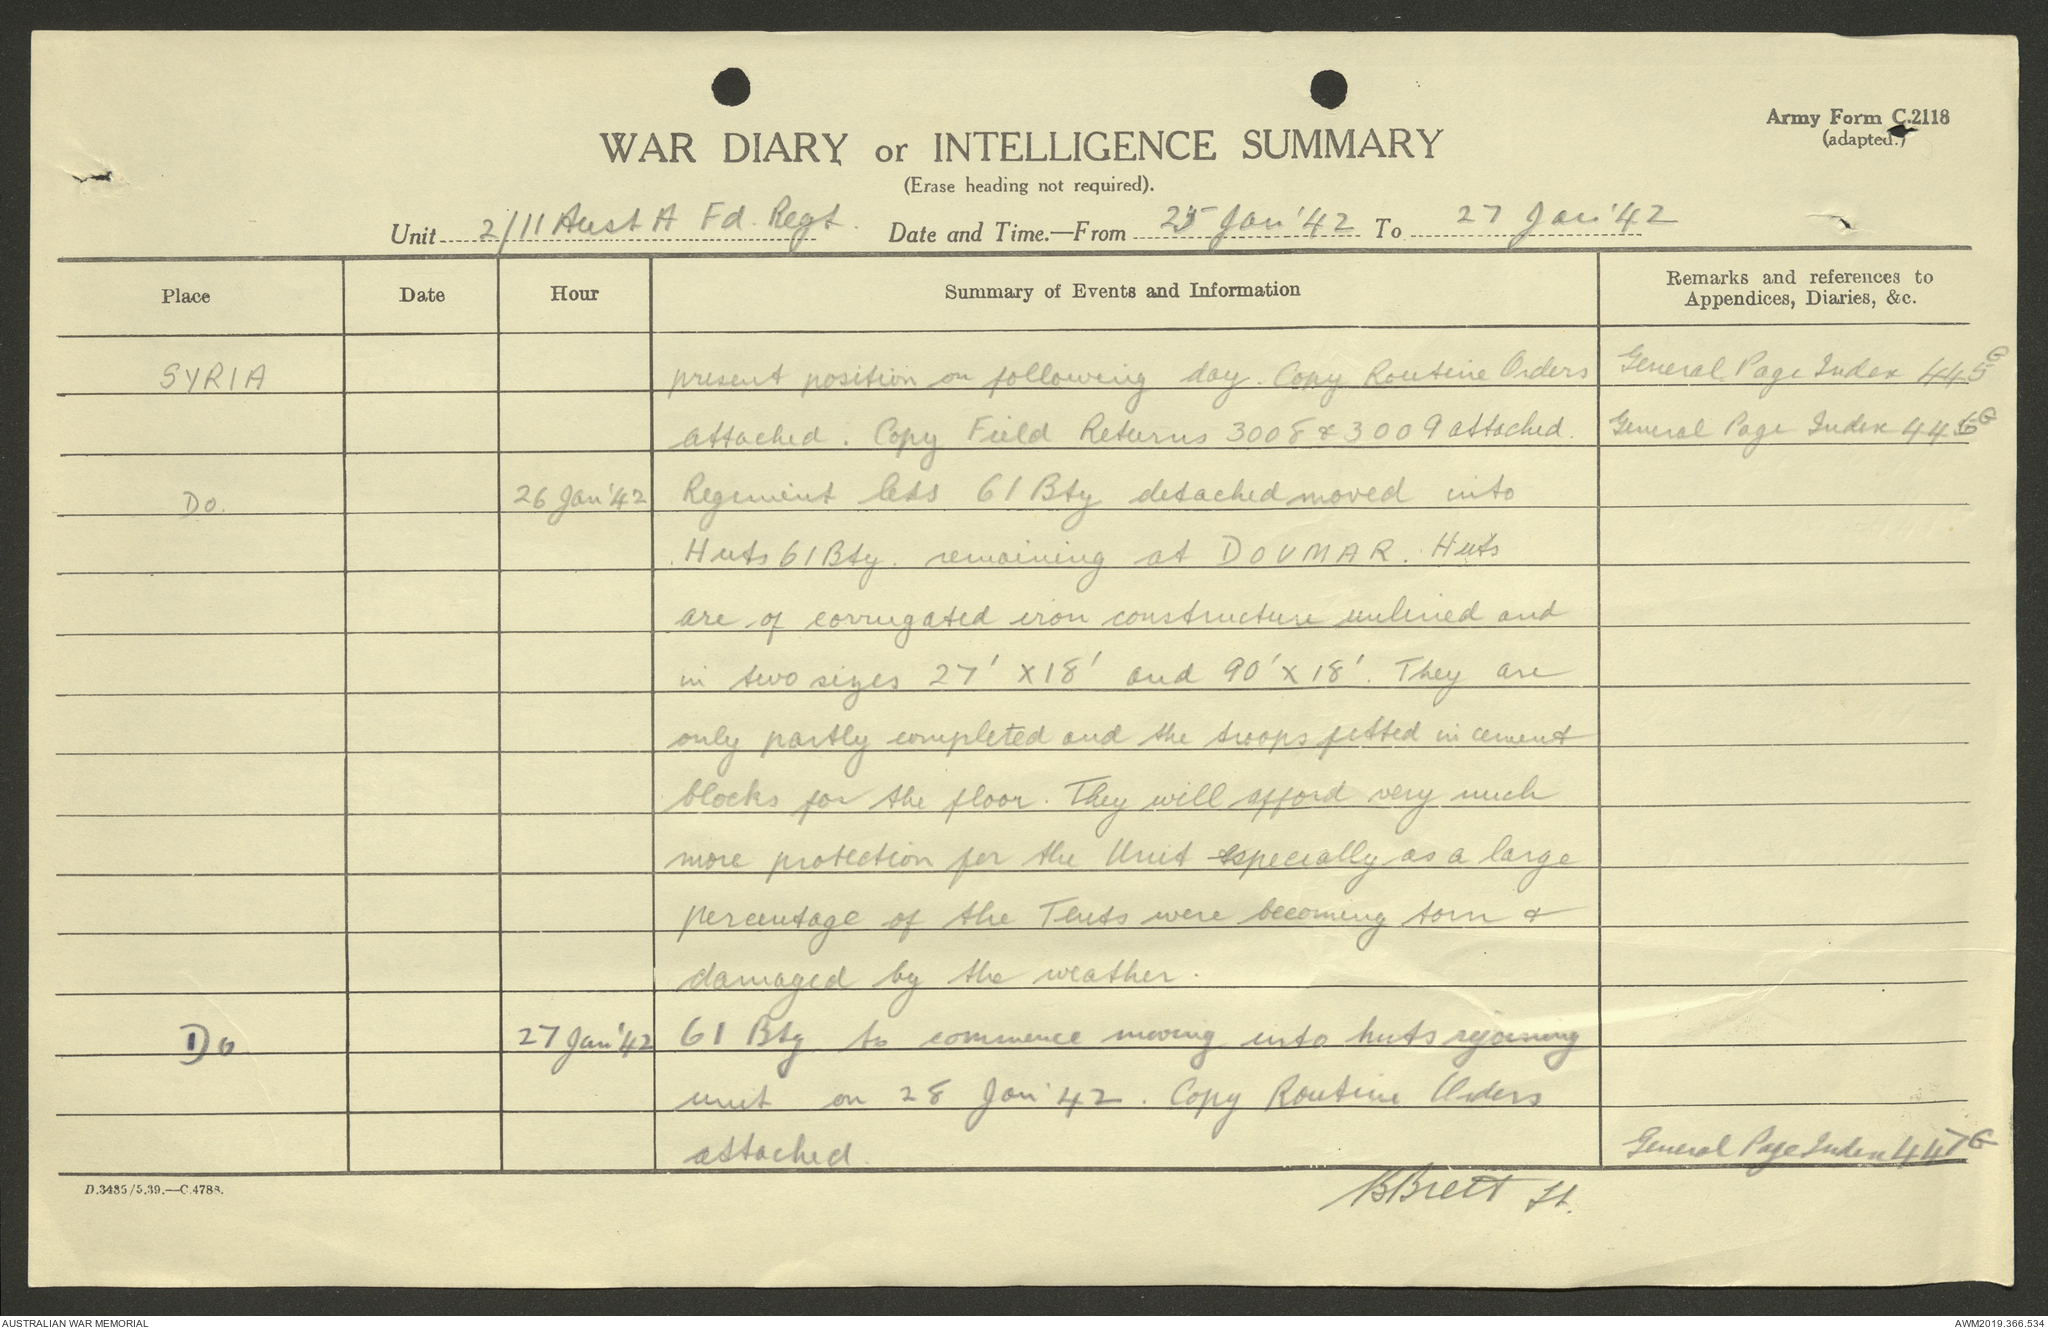 Army Form C.2118
(adapted.)
WAR DIARY or INTELLIGENCE SUMMARY
(Erase heading not required).
Unit 2/11 Aust A Fd. Regt. Date and Time.—From 25 Jan '42 To 27 Jan '42
Place Date Hour Summary of Events and Information Remarks and references to Appendices, Diaries, &c.
SYRIA present position on following day. Copy Routine Orders General Page Index 445G
attached. Copy Field Returns 3008 & 3009 attached. General Page Index 446G
Do. 26 Jan '42 Regiment less 61 Bty detached moved into
Huts 61 Bty. remaining at DOUMAR. Huts
are of corrugated iron constructure unlined and
in two sizes 27' x 18' and 90' x 18'. They are
only partly completed and the troops fitted in cement
blocks for the floor. They will afford very much
more protection for the Unit especially as a large
percentage of the Tents were becoming torn &
damaged by the weather.
Do 27 Jan '42 61 Bty to commence moving into huts rejoining
unit on 28 Jan '42. Copy Routine Orders
attached. General Page Index 447G
D.3435/5.39.—C.4788.
BBrett Lt.
AUSTRALIAN WAR MEMORIAL
AWM2019.366.534